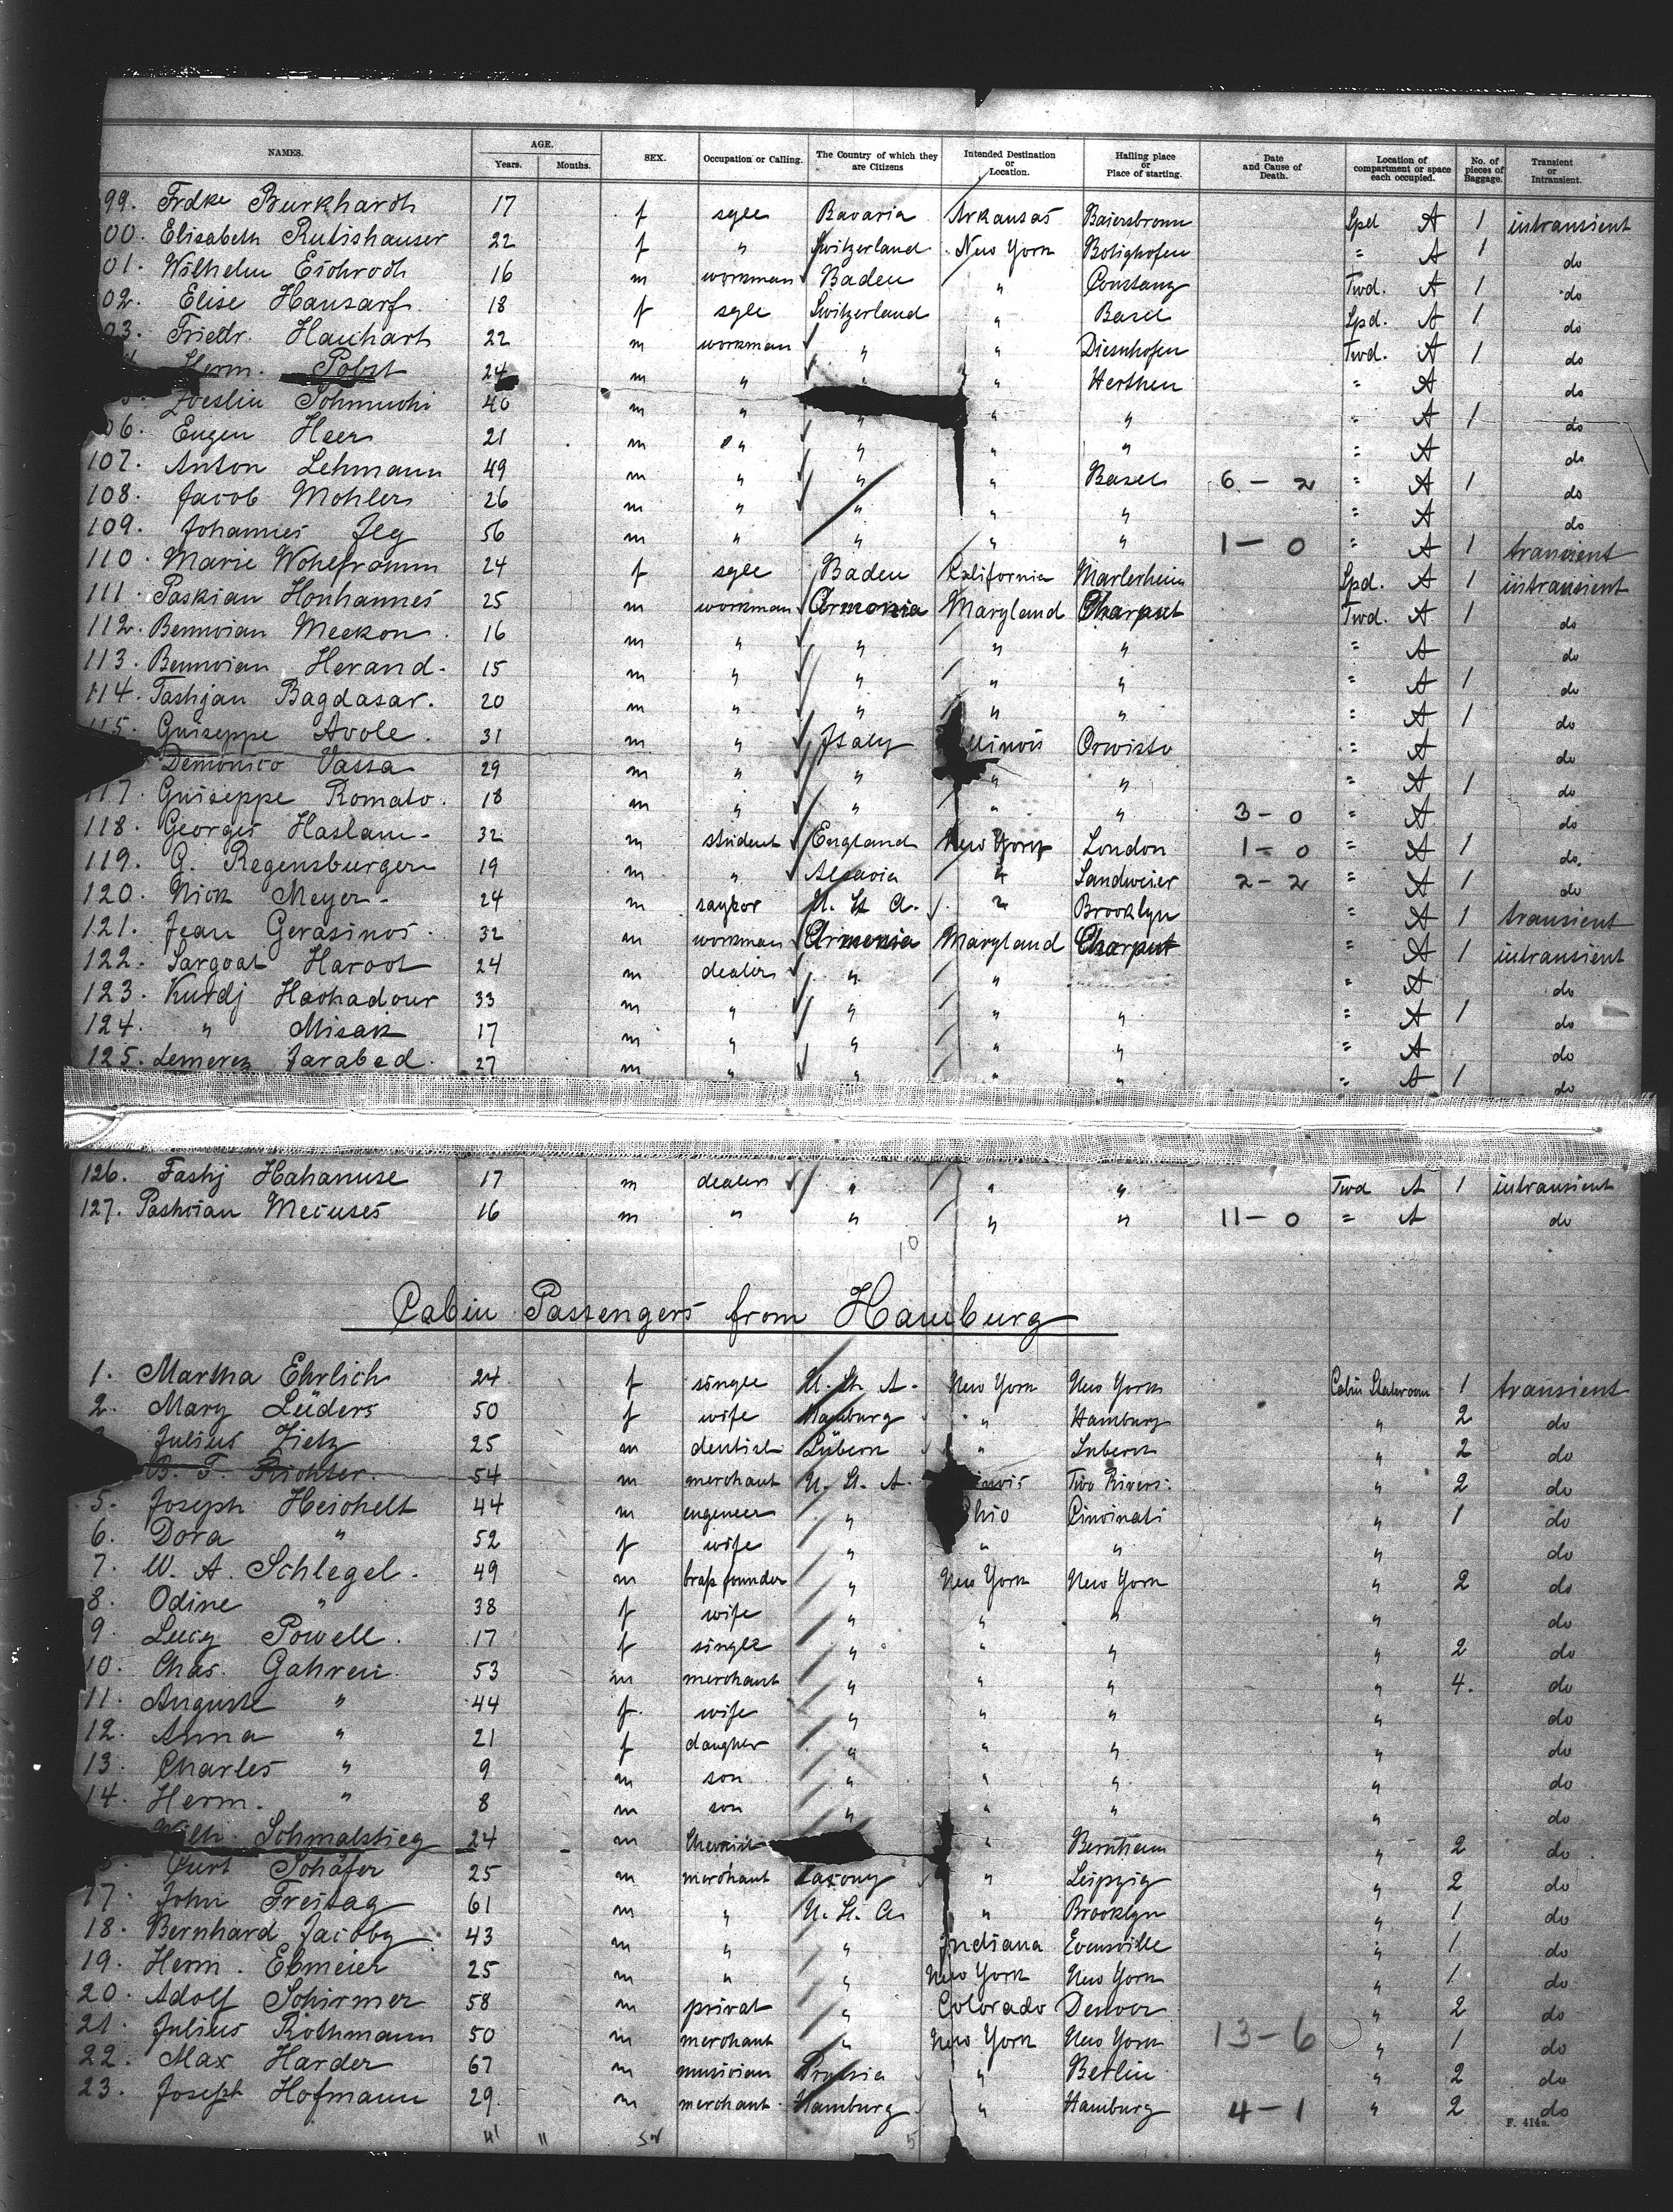 NAMES. AGE. Years. Months. SEX. Occupation or Calling. The Country of which they are Citizens Intended Destination or Location. Hailing place or Place of starting. Date and Cause of Death. Location of compartment or space each occupied. No. of pieces of Baggage. Transient or Intransient.
99. Frdke Burkhardh 17 f sgle Bavaria Arkansas Baiersbronn Spd A 1 intransient
00. Elisabeth Rutishauser 22 f " Switzerland New York Botighofen " A 1 do
01. Wilhelm Eichrodh 16 m workman Baden " Constanz Twd. A 1 do
02. Elise Hausarf 18 f sgle Switzerland " Basel Spd. A 1 do
03. Friedr. Hauhart 22 m workman " " Diesenhofen Twd. A 1 do
Herm. Pabst 24 m " " Herthen " A do
Zoeslin Schmuchi 40 m " " " " " A 1 do
06. Eugen Heer 21 m " " " " " A do
107. Anton Lehmann 49 m " " " Basel 6 - 2 " A 1 do
108. Jacob Mohler 26 m " " " " " A do
109. Johannes Jlg 56 m " " " " 1 - 0 " A 1 transient
110. Marie Wohlframm 24 f sgle Baden California Marlerheim Spd. A 1 intransient
111. Paskian Honhannes 25 m workman Armenia Maryland Charput Twd. A 1 do
112. Bennoian Meekon 16 m " " " " " A do
113. Bennoian Herand 15 m " " " " " A 1 do
114. Tashjan Bagdasar. 20 m " " " " " A 1 do
115. Guiseppe Avole. 31 m " Italy Illinois Orwisto " A do
Demonico Vassa 29 m " " " " " A 1 do
117. Guiseppe Romato. 18 m " " " " 3 - 0 " A do
118. Georges Haslam 32 m student England New York London 1 - 0 " A 1 do
119. G. Regensburger 19 m " Alsavia " Sandweier 2 - 2 " A 1 do
120. Nick Meyer 24 m saylor U. St. A. " Brooklyn " A 1 transient
121. Jean Gerasinos. 32 m workman Armenia Maryland Charput " A 1 intransient
122. Sargoat Haroot 24 m dealer " " " A do
123. Kurdj Hachadour 33 m " " " " " A 1 do
124. " Misak 17 m " " " " " A do
125. Lemerez Jarabed. 27 m " " " " " A 1 do
126. Fashj Hahanuse 17 m dealer " " " Twd A 1 intransient
127. Pashoian Mecuses 16 m " " " " 11 - 0 " A do
10
Cabin Passengers from Hamburg
1. Martha Ehrlich 24 f single U. St. A. New York New York Cabin Stateroom 1 transient
2. Mary Lüders 50 f wife Hamburg " Hamburg " 2 do
Julius Zietz 25 m dentist Lübeck " Lubeck " 2 do
B. F. Richter. 54 m merchant U. St. A. Two Rivers. " 2 do
5. Joseph Heichelt 44 m engeneer " Ohio Cincinati " 1 do
6. Dora " 52 f wife " " " " do
7. W. A. Schlegel. 49 m brass founder " New York New York " 2 do
8. Odine " 38 f wife " " " " do
9. Lucy Powell. 17 f single " " " " 2 do
10. Chas. Gahren 53 m merchant " " " " 4. do
11. Auguste " 44 f. wife " " " " do
12. Anna " 21 f daugher " " " " do
13. Charles " 9 m son " " " " do
14. Herm. " 8 m son " " " " do
Wilh. Schmalstieg 24 m Chemist " Berntheim " 2 do
Curt Schäfer 25 m merchant Saxony " Leipzig " 2 do
17. John Freitag 61 m " U. St. A. " Brooklyn " 1 do
18. Bernhard Jacoby 43 m " " Indiana Evensville " 1 do
19. Herm. Ebmeier 25 m " " New York New York " 1 do
20. Adolf Schirmer 58 m privat " Colorado Denver " 2 do
21. Julius Rothmann 50 m merchant " New York New York 13 - 6 " 1 do
22. Max Harder 67 m musician Prussia " Berlin " 2 do
23. Joseph Hofmann 29. m merchant Hamburg " Hamburg 4 - 1 " 2 do
F. 414a.
5